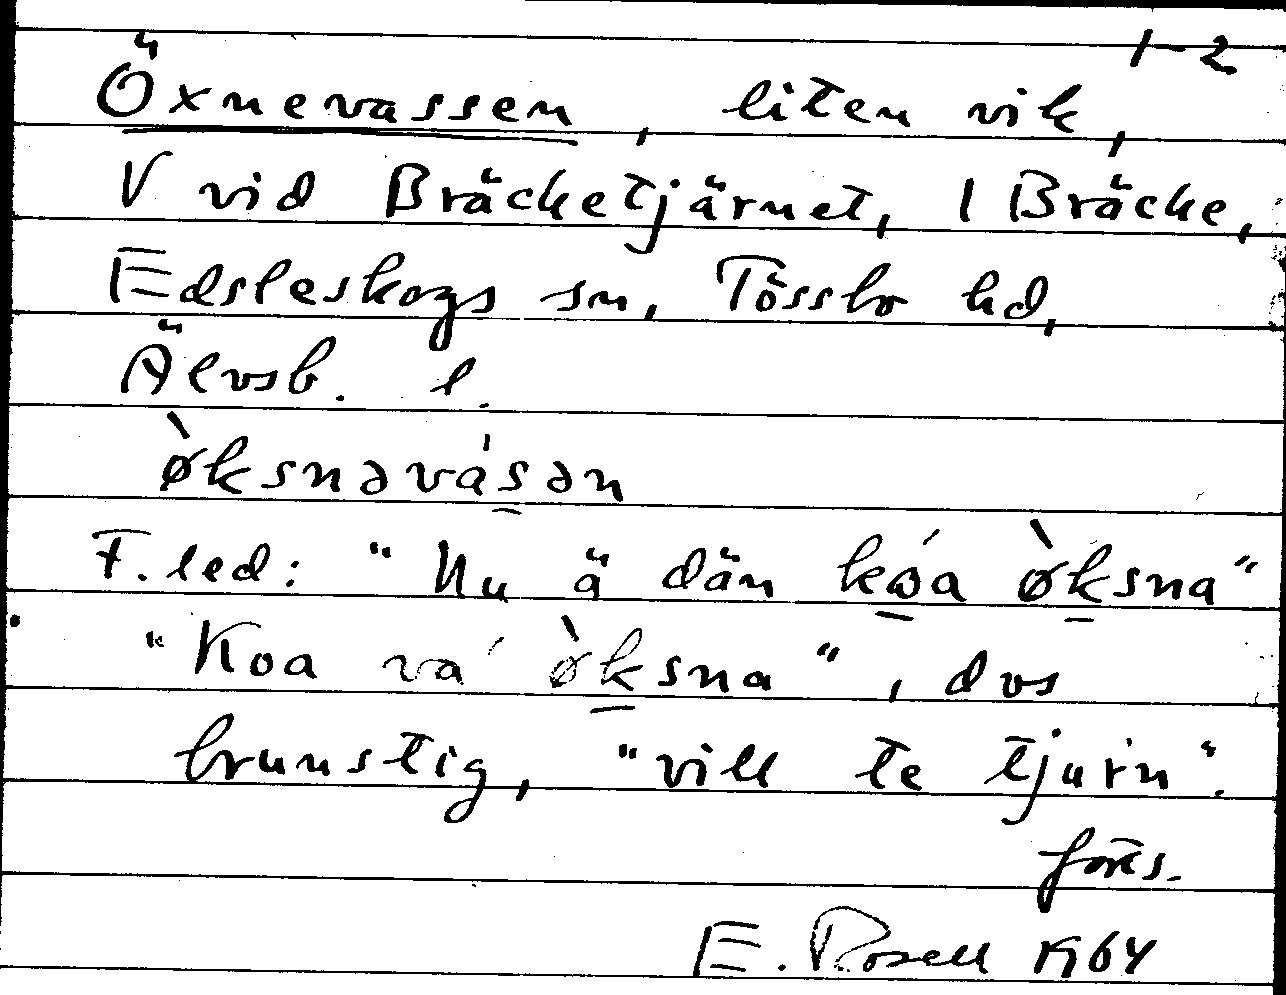 1-2
Öxnevassen, liten vik,
V vid Bräcketjärnet, 1 Bräcke,
Edsleskogs sn, Tössbo hd,
Älvsb. l.
ø̀ksnəvásən
F. led: "Nu ä dän kǿa ø̀ksna"
"Koa va' ø̀ksna", dvs
brunstig, "vill te tjurn".
forts.
E. Rosell 1964